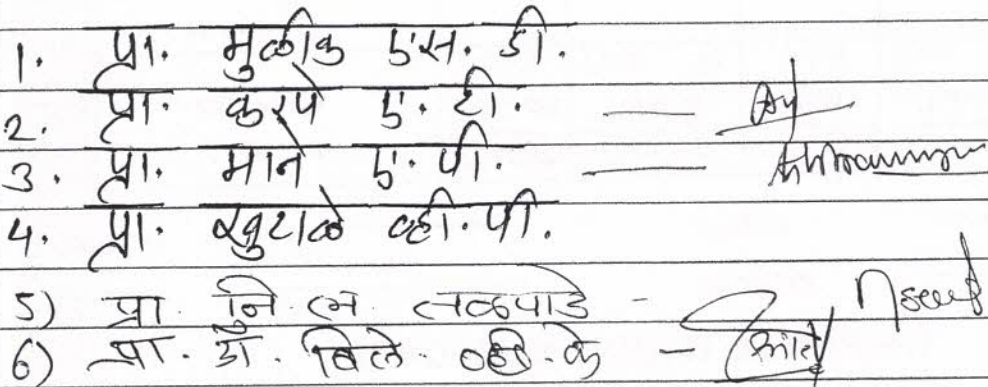 1. प्रा. मुळीक एस. डी.
2. प्रा. करपे ए. टी. —
3. प्रा. माने ए. पी. —
4. प्रा. खुटाळे व्ही. पी.
5) प्रा. नि. ल. तळपाडे -
6) प्रा. डॉ. बिले. व्ही. के -